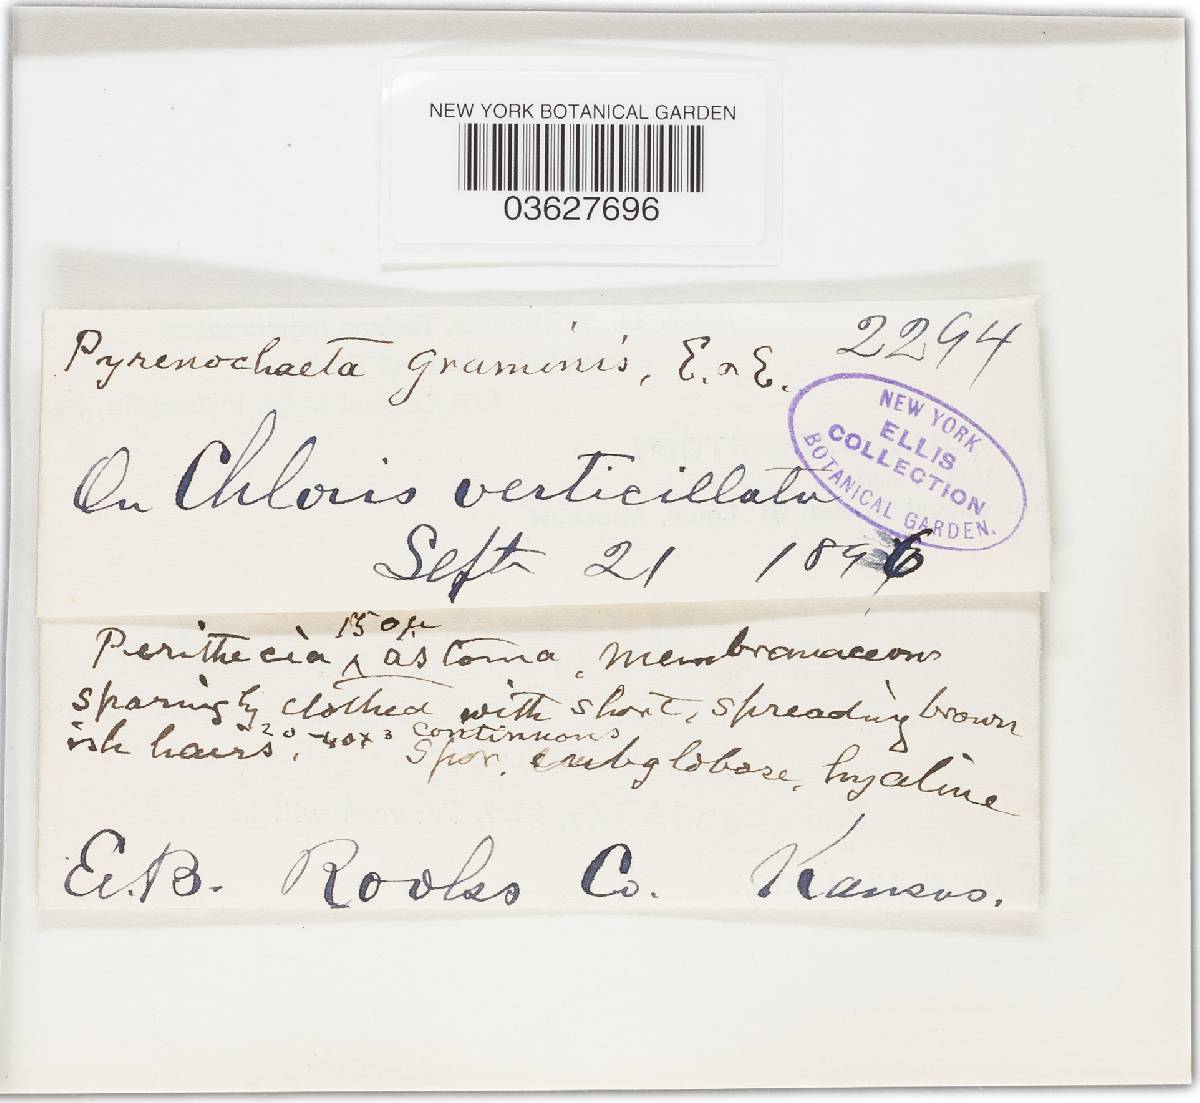 NEW YORK BOTANICAL GARDEN
03627696
2294
Pyrenochaeta graminis, E. & E.
NEW YORK
ELLIS
COLLECTION
BOTANICAL GARDEN.
On Chloris verticillata
Sept 21 1896
150µ
Perithecia ^ astoma, membranaceous
sparingly clothed with short, spreading brown
ish hairs, 20-40x3 continuous
Spor. subglobose, hyaline
E.B. Rooks Co. Kansas.